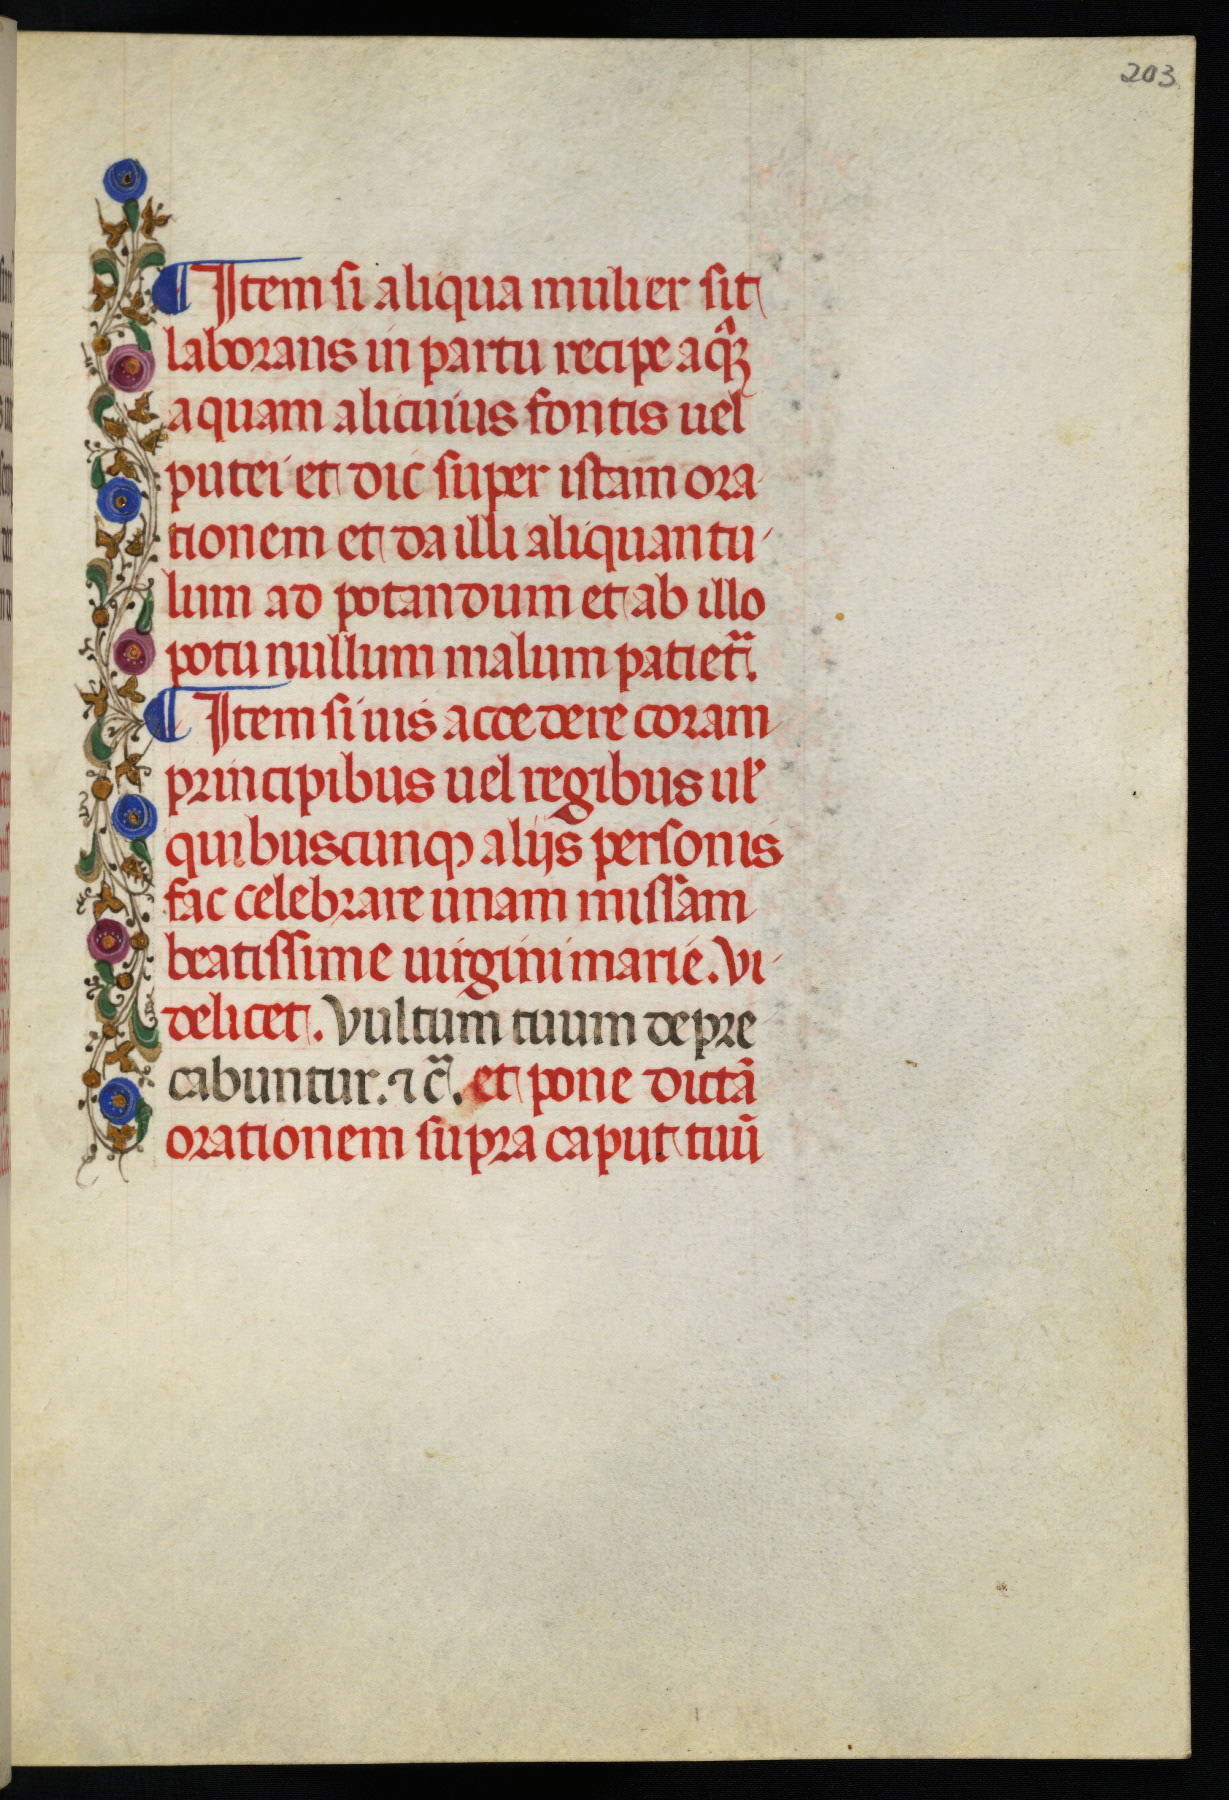 203
¶ Item si aliqua mulier sit
laborans in partu recipe
aquam alicuius fontis uel
putei et dic super istam ora
tionem et da illi aliquantu-
lum ad potandum et ab illo
potu nullum malum patiet᷑.
¶ Item si uis accedere coram
principibus uel regibus ul̛
quibuscunqꝫ alijs personis
fac celebrare unam missam
beatissime uirgini marie. Vi-
delicet. Vultum tuum depre
cabuntur. ⁊ c̃. et pone dictā
orationem supra caput tuū